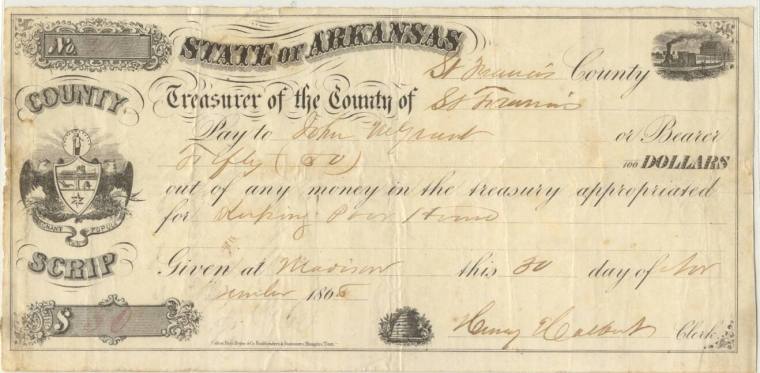 No.
STATE OF ARKANSAS
St Francis County
COUNTY
Treasurer of the County of St Francis
Pay to John or Bearer
Fifty (50) 100 DOLLARS
out of any money in the treasury appropriated
for Keeping Poor House
POPULI
SCRIP
Given at Madison this 30 day of Nov
ember 186
$ 50
Henry Halbert Clerk.